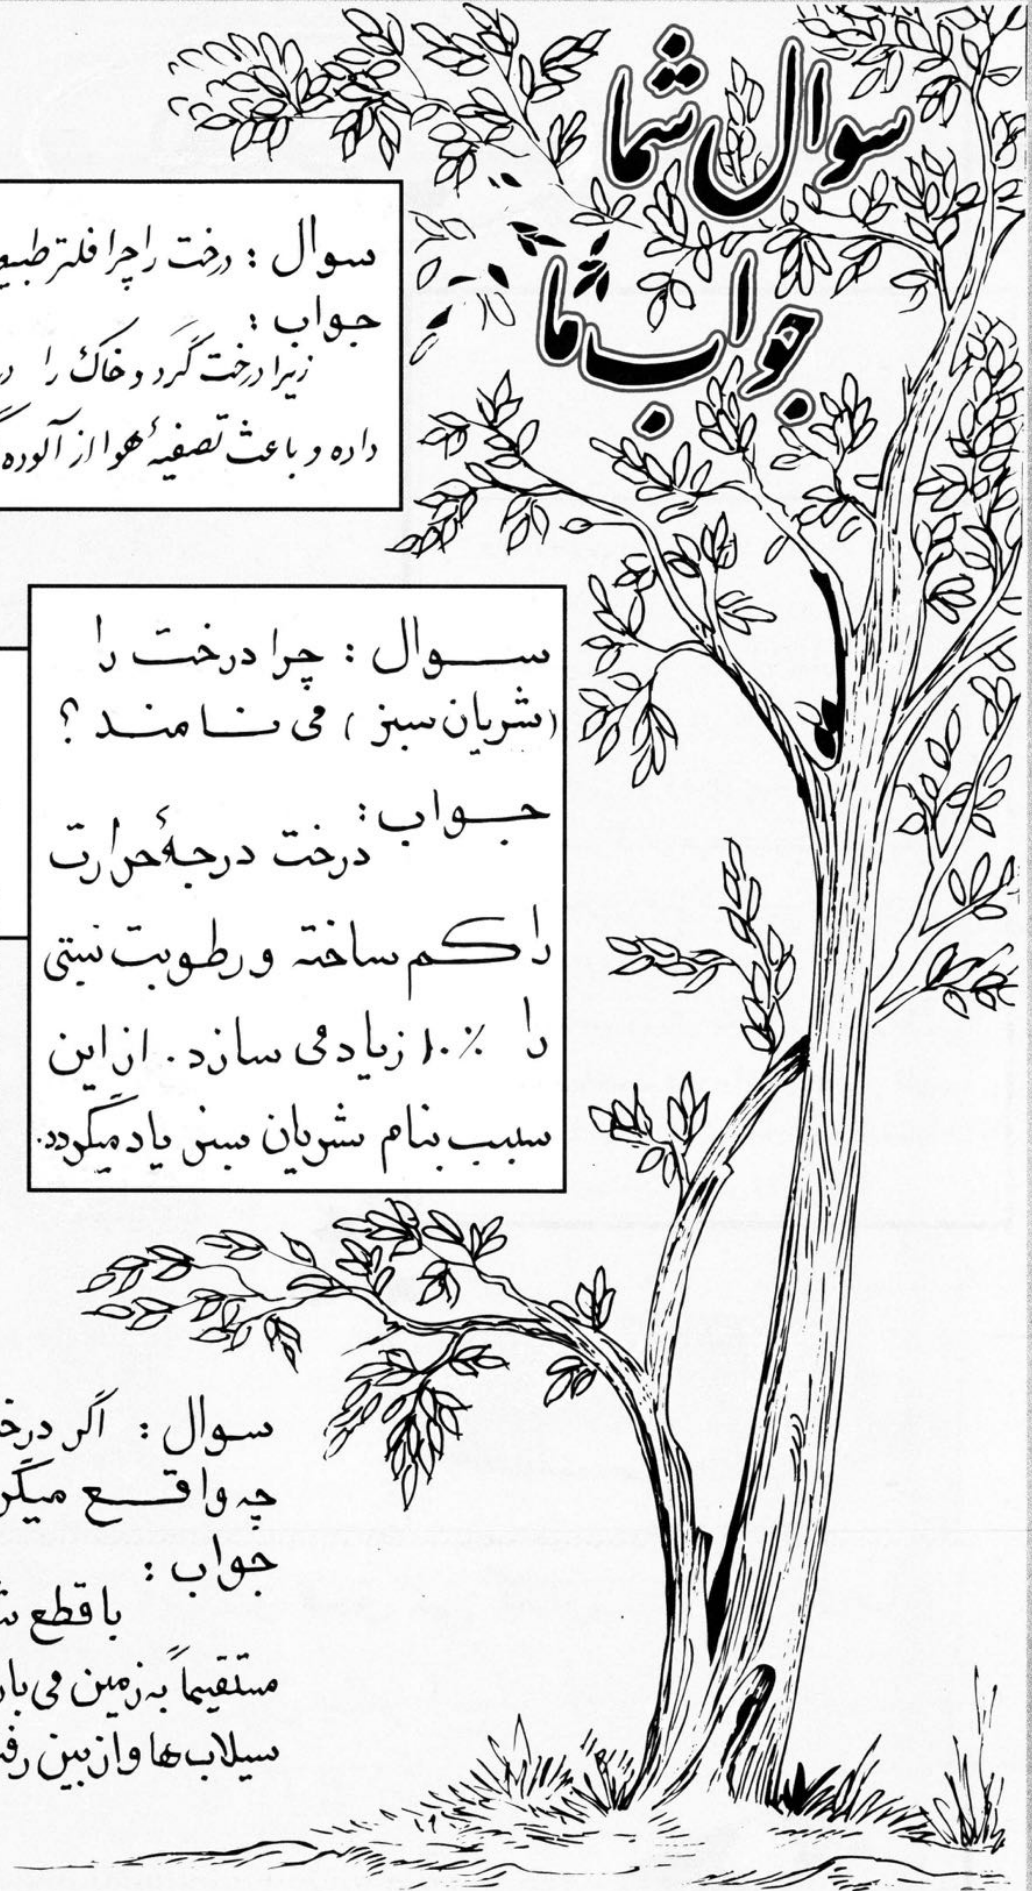 سوال شما
جواب ما
سوال : درخت را چرا فلتر
جواب :
زیرا درخت گرد و خاک را
داده و باعث تصفیهٔ هوا از آلوده
ســوال : چرا درخت را
(شریان سبز) می نامند ؟
جــواب :
درخت درجهٔ حرارت
را کم ساخته و رطوبت نسبتی
را ۱۰٪ زیاد می سازد . از این
سبب بنام شریان سبز یاد میگردد.
سوال : اگر
چه واقــع
جواب :
با قطع
مستقیماً به زمین می
سیلاب ها و از بین